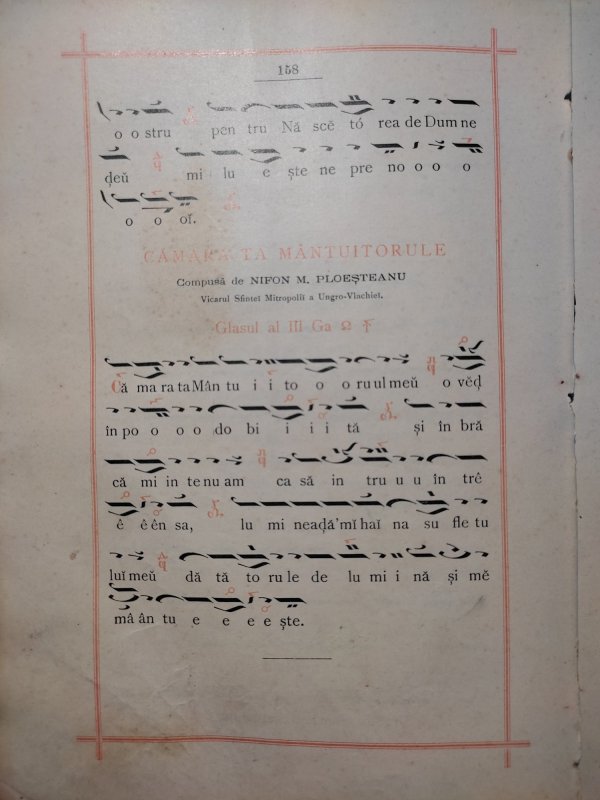 158
o o stru pen tru Nă scě tó rea de Dum ne
ḑeŭ mi lu e ște ne pre no o o o
o o oĭ.
CĂMARA TA MÂNTUITORULE
Compusă de NIFON M. PLOEȘTEANU
Vicarul Sfintei Mitropolii a Ungro-Vlachiei.
Glasul al III Ga
Că ma ra ta Mân tu i i to o o ru ul meŭ o vĕḑ
în po o o o do bi i i i tă și în bră
că mi in te nu am ca să in tru u u în trê
ê ê ên sa, lu mi neaḑă'mĭ haĭ na su fle tu
luĭ meŭ dă tă to ru le de lu mi i nă și mĕ
mâ ân tu e e e e ște.